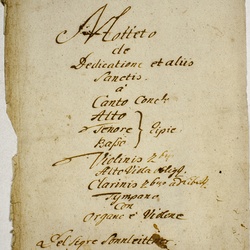 Motteto
de
Dedicatione et aliis
Sanctis.
à
Canto Conc:
Alto
Tenore } Ripie
Basso
Violinis 2bus
Alto Viola
Clarinis 2bus
Tympano
Con
Organo è Violone
Del Sigre Sonnleithner